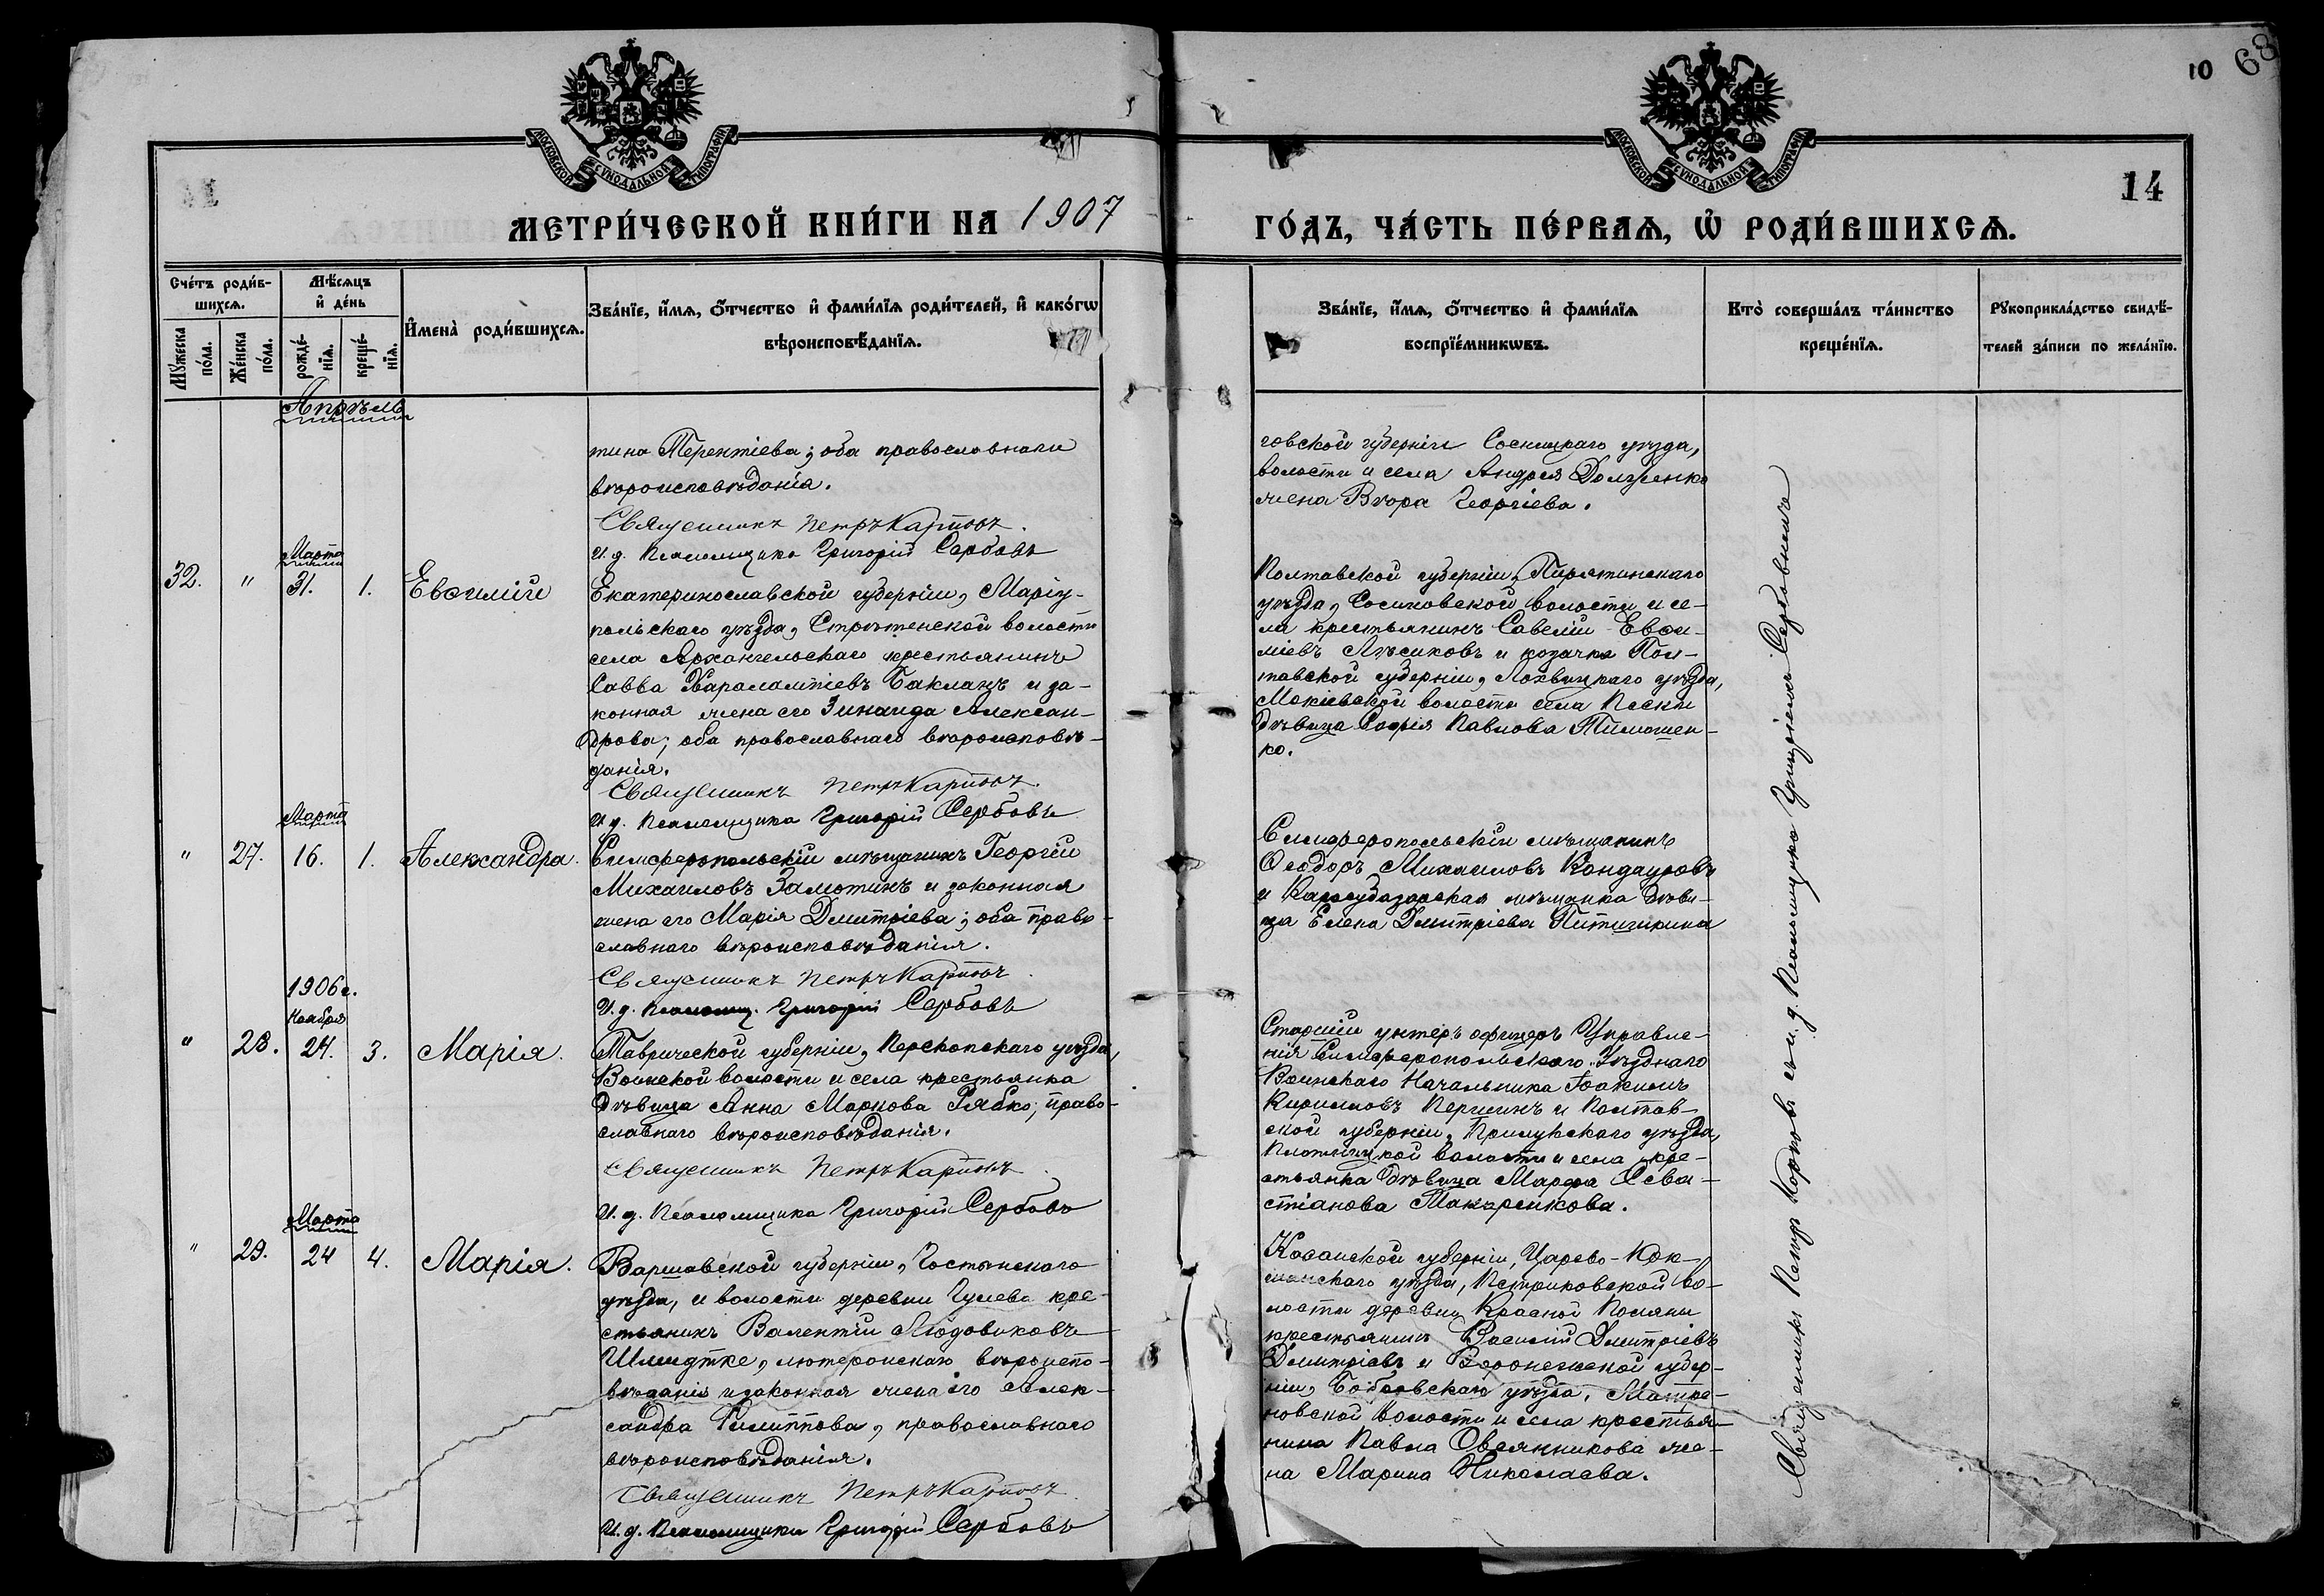 10 68
МОСКОВСКОЙ СѴНОДАЛЬНОЙ ТИПОГРАФІИ
МОСКОВСКОЙ СѴНОДАЛЬНОЙ ТИПОГРАФІИ
14
МЕТРИ́ЧЕСКОЙ КНИ́ГИ НА 1907
ГО́ДЪ, ЧА́СТЬ ПЕ́РВАѦ, Ѽ РОДИ́ВШИХСѦ.
Сче́тъ роди́в-
шихсѧ.
Мѣ́сѧцъ
и҆ де́нь
Мꙋ́жеска по́ла.
Же́нска по́ла.
рожде́-нїѧ.
креще́-нїѧ.
И҆мена̀ роди́вшихсѧ.
Зва́нїе, и҆́мѧ, ѻ҆́тчество и҆ фами́лїѧ роди́телей, и҆ како́гѡ
вѣроисповѣ́данїѧ.
Зва́нїе, и҆́мѧ, ѻ҆́тчество и҆ фами́лїѧ
воспрїе́мникѡвъ.
Кто̀ соверша́лъ та́инство
креще́нїѧ.
Рꙋкоприкла́дство свидѣ́-
телей за́писи по жела́нїю.
Апрѣль
тина Терентіева; оба православнаго
вѣроисповѣданія.
Священникъ Петръ Карповъ.
И. д. Псаломщика Григорій Сербовъ
говской губерніи Сосницкаго уѣзда,
волости и села Андрея Долженко
жена Вѣра Георгіева.
32. " Марта 31. 1. Евѳимій
Екатеринославской губерніи, Маріу-
польскаго уѣзда, Стрѣтенской волости
села Архангельскаго крестьянинъ
Савва Харалампіевъ Бакланъ и за-
конная жена его Зинаида Алексан-
дрова; оба православнаго вѣроисповѣ-
данія.
Священникъ Петръ Карповъ.
И. д. Псаломщика Григорій Сербовъ
Полтавской губерніи, Пирятинскаго
уѣзда, Сосиновской волости и се-
ла крестьянинъ Савелій Евѳи-
міевъ Лѣсиковъ и козачка Пол-
тавской губерніи, Лохвицкаго уѣзда,
волости села Пески
дѣвица Софія Павлова Тимошен-
ко.
" 27. Марта 16. 1. Александра.
Симферопольскій мѣщанинъ Георгій
Михаиловъ Замотинъ и законная
жена его Марія Дмитріева; оба право-
славнаго вѣроисповѣданія.
Священникъ Петръ Карповъ.
И. д. Псаломщ. Григорій Сербовъ
Симферопольскій мѣщанинъ
Ѳеодоръ Михаиловъ Кондауровъ
и Карасубазарская мѣщанка дѣви-
ца Елена Дмитріева
" 28. 1906 г. Ноября 24. 3. Марія.
Таврической губерніи, Перекопскаго уѣзда,
Воинской волости и села крестьянка
дѣвица Анна Маркова Рябко; право-
славнаго вѣроисповѣданія.
Священникъ Петръ Карповъ.
И. д. Псаломщика Григорій Сербовъ
Старшій унтеръ офицеръ Управле-
нія Симферопольскаго Уѣзднаго
Воинскаго Начальника Іоакимъ
Кирилловъ Першинъ и Полтав-
ской губерніи, Прилукскаго уѣзда,
волости и села кре-
стьянка дѣвица Марфа Сева-
стіанова Макаренкова.
" 29. Марта 24 4. Марія.
Варшавской губерніи, Гостынскаго
уѣзда, и волости деревни Гулева кре-
стьянинъ Валентій Людовиковъ
Шмидтке, лютеранскаго вѣроиспо-
вѣданія и законная жена его Алек-
сандра Филиппова, православнаго
вѣроисповѣданія.
Священникъ Петръ Карповъ
И. д. Псаломщика Григорій Сербовъ
Казанской губерніи, Царево-Кок-
шайскаго уѣзда, Петриковской во-
лости деревни Красной Поляны
крестьянинъ Василій Дмитріевъ
Дмитріевъ и Воронежской губер-
ніи, Бобровскаго уѣзда, Матре-
новской волости и села крестья-
нина Павла Овсянникова же-
на Марина Николаева.
Священникъ Петръ Карповъ съ и. д. Псаломщика Григоріемъ Сербовымъ